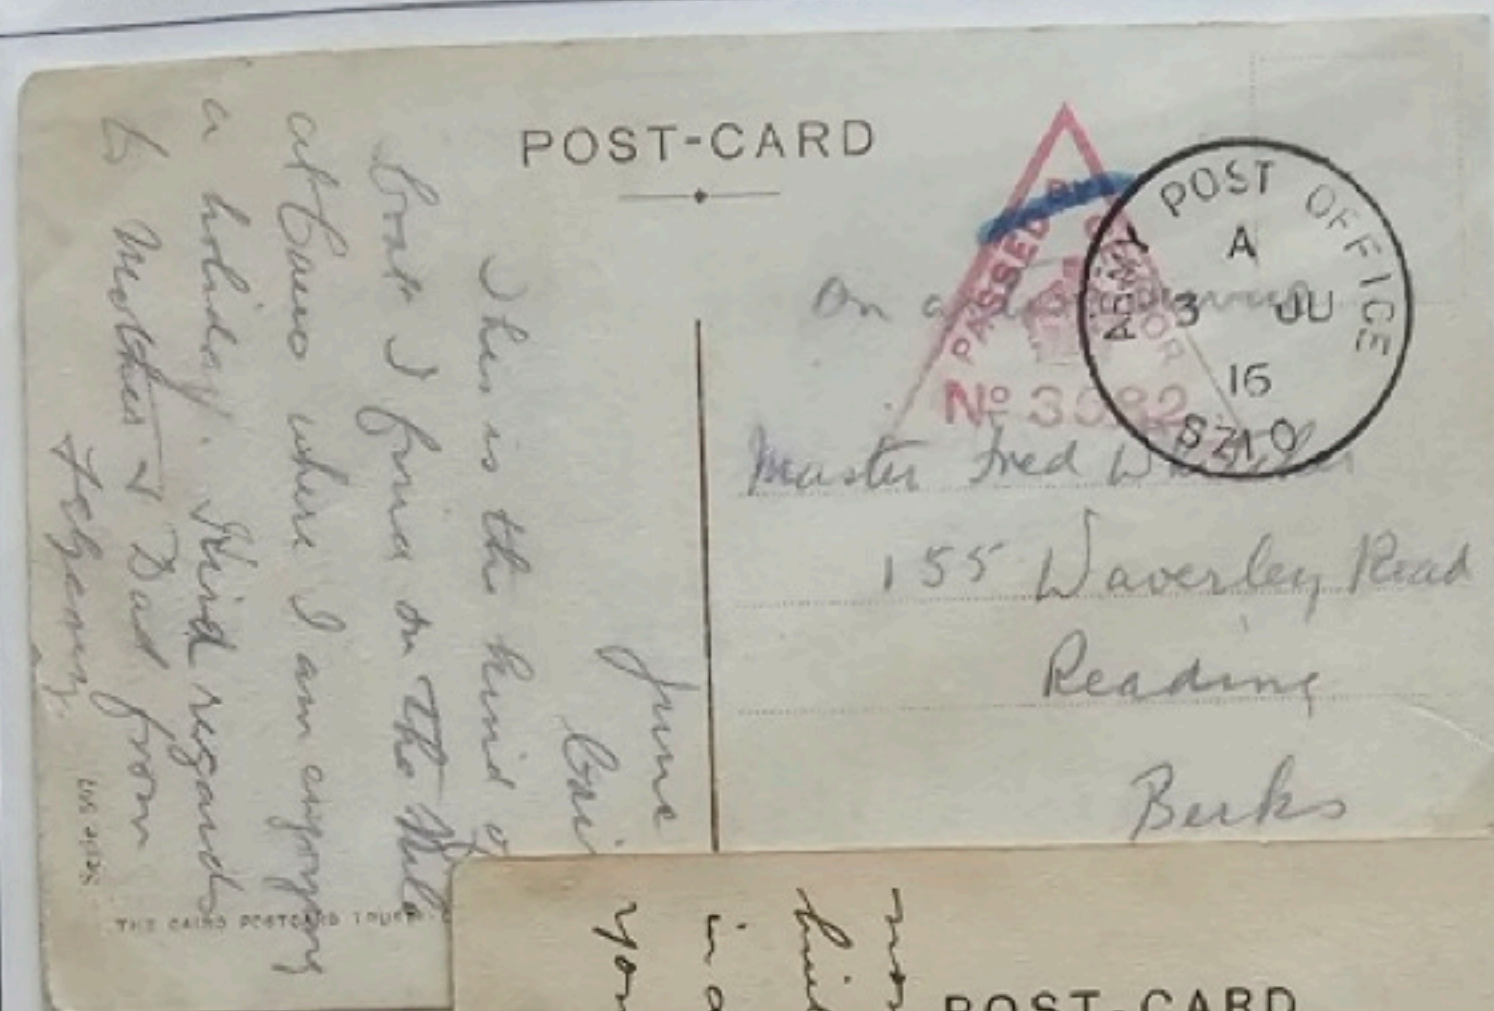 POST-CARD
PASSED BY
CENSOR
No 3382
ARMY POST OFFICE
A
3 JU
16
SZ10
On active service
Master Fred
155 Waverley Road
Reading
Berks
June
Cai
This is the kind of
boat I find on the Nile
at Cairo where I am enjoying
a holiday. Kind regards
to Mother & Dad from
THE CAIRO POSTCARD TRUST
POST-CARD
in a
you